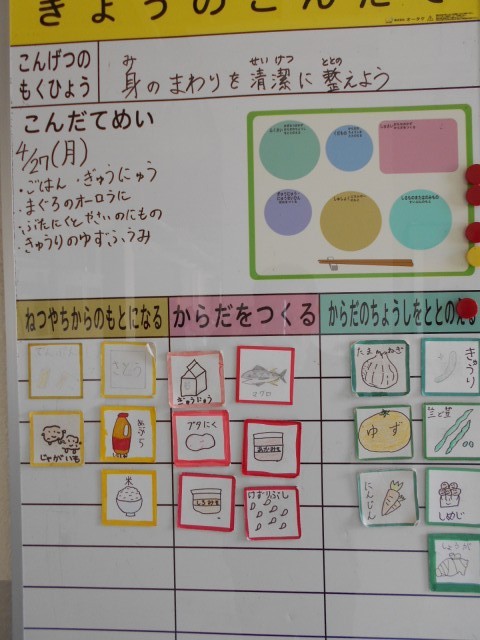 きょうのこんだて
こんげつの
もくひょう
身のまわりを清潔に整えよう
み せいけつ ととの
こんだてめい
4/27(月)
・ごはん ・ぎゅうにゅう
・まぐろのオーロラに
・ぶたにくとやさいのにもの
・きゅうりのゆずふうみ
ねつやちからのもとになる
からだをつくる
からだのちょうしをととのえる
さとう
ぎゅうにゅう
マグロ
たまねぎ
きゅうり
じゃがいも
あぶら
ブタにく
あかみそ
ゆず
米
しろみそ
けずりぶし
にんじん
しめじ
しょうが